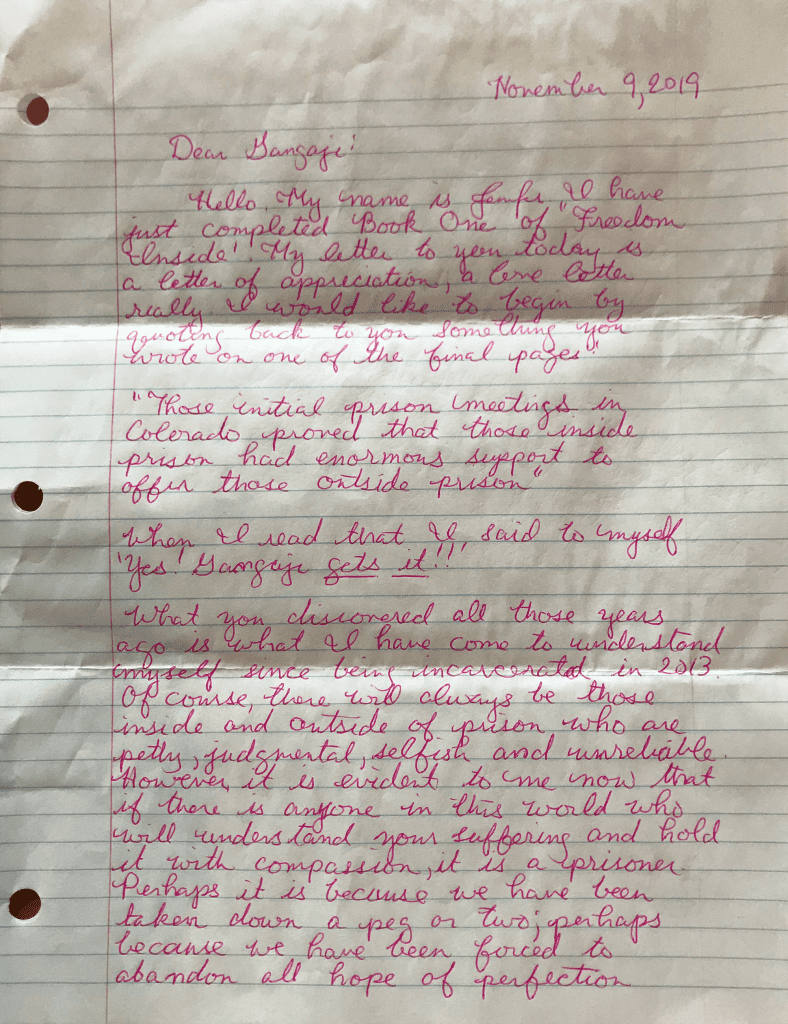 November 9, 2019
Dear Gangaji:
Hello. My name is I have
just completed Book One of "Freedom
Inside". My letter to you today is
a letter of appreciation, a love letter
really. I would like to begin by
quoting back to you something you
wrote on one of the final pages:
"Those initial prison meetings in
Colorado proved that those inside
prison had enormous support to
offer those outside prison"
When I read that I, said to myself
'Yes! Gangaji gets it!!!'
What you discovered all those years
ago is what I have come to understand
myself since being incarcerated in 2013.
Of course, there will always be those
inside and outside of prison who are
petty, judgmental, selfish and unreliable.
However, it is evident to me now that
if there is anyone in this world who
will understand your suffering and hold
it with compassion, it is a prisoner.
Perhaps it is because we have been
taken down a peg or two; perhaps
because we have been forced to
abandon all hope of perfection